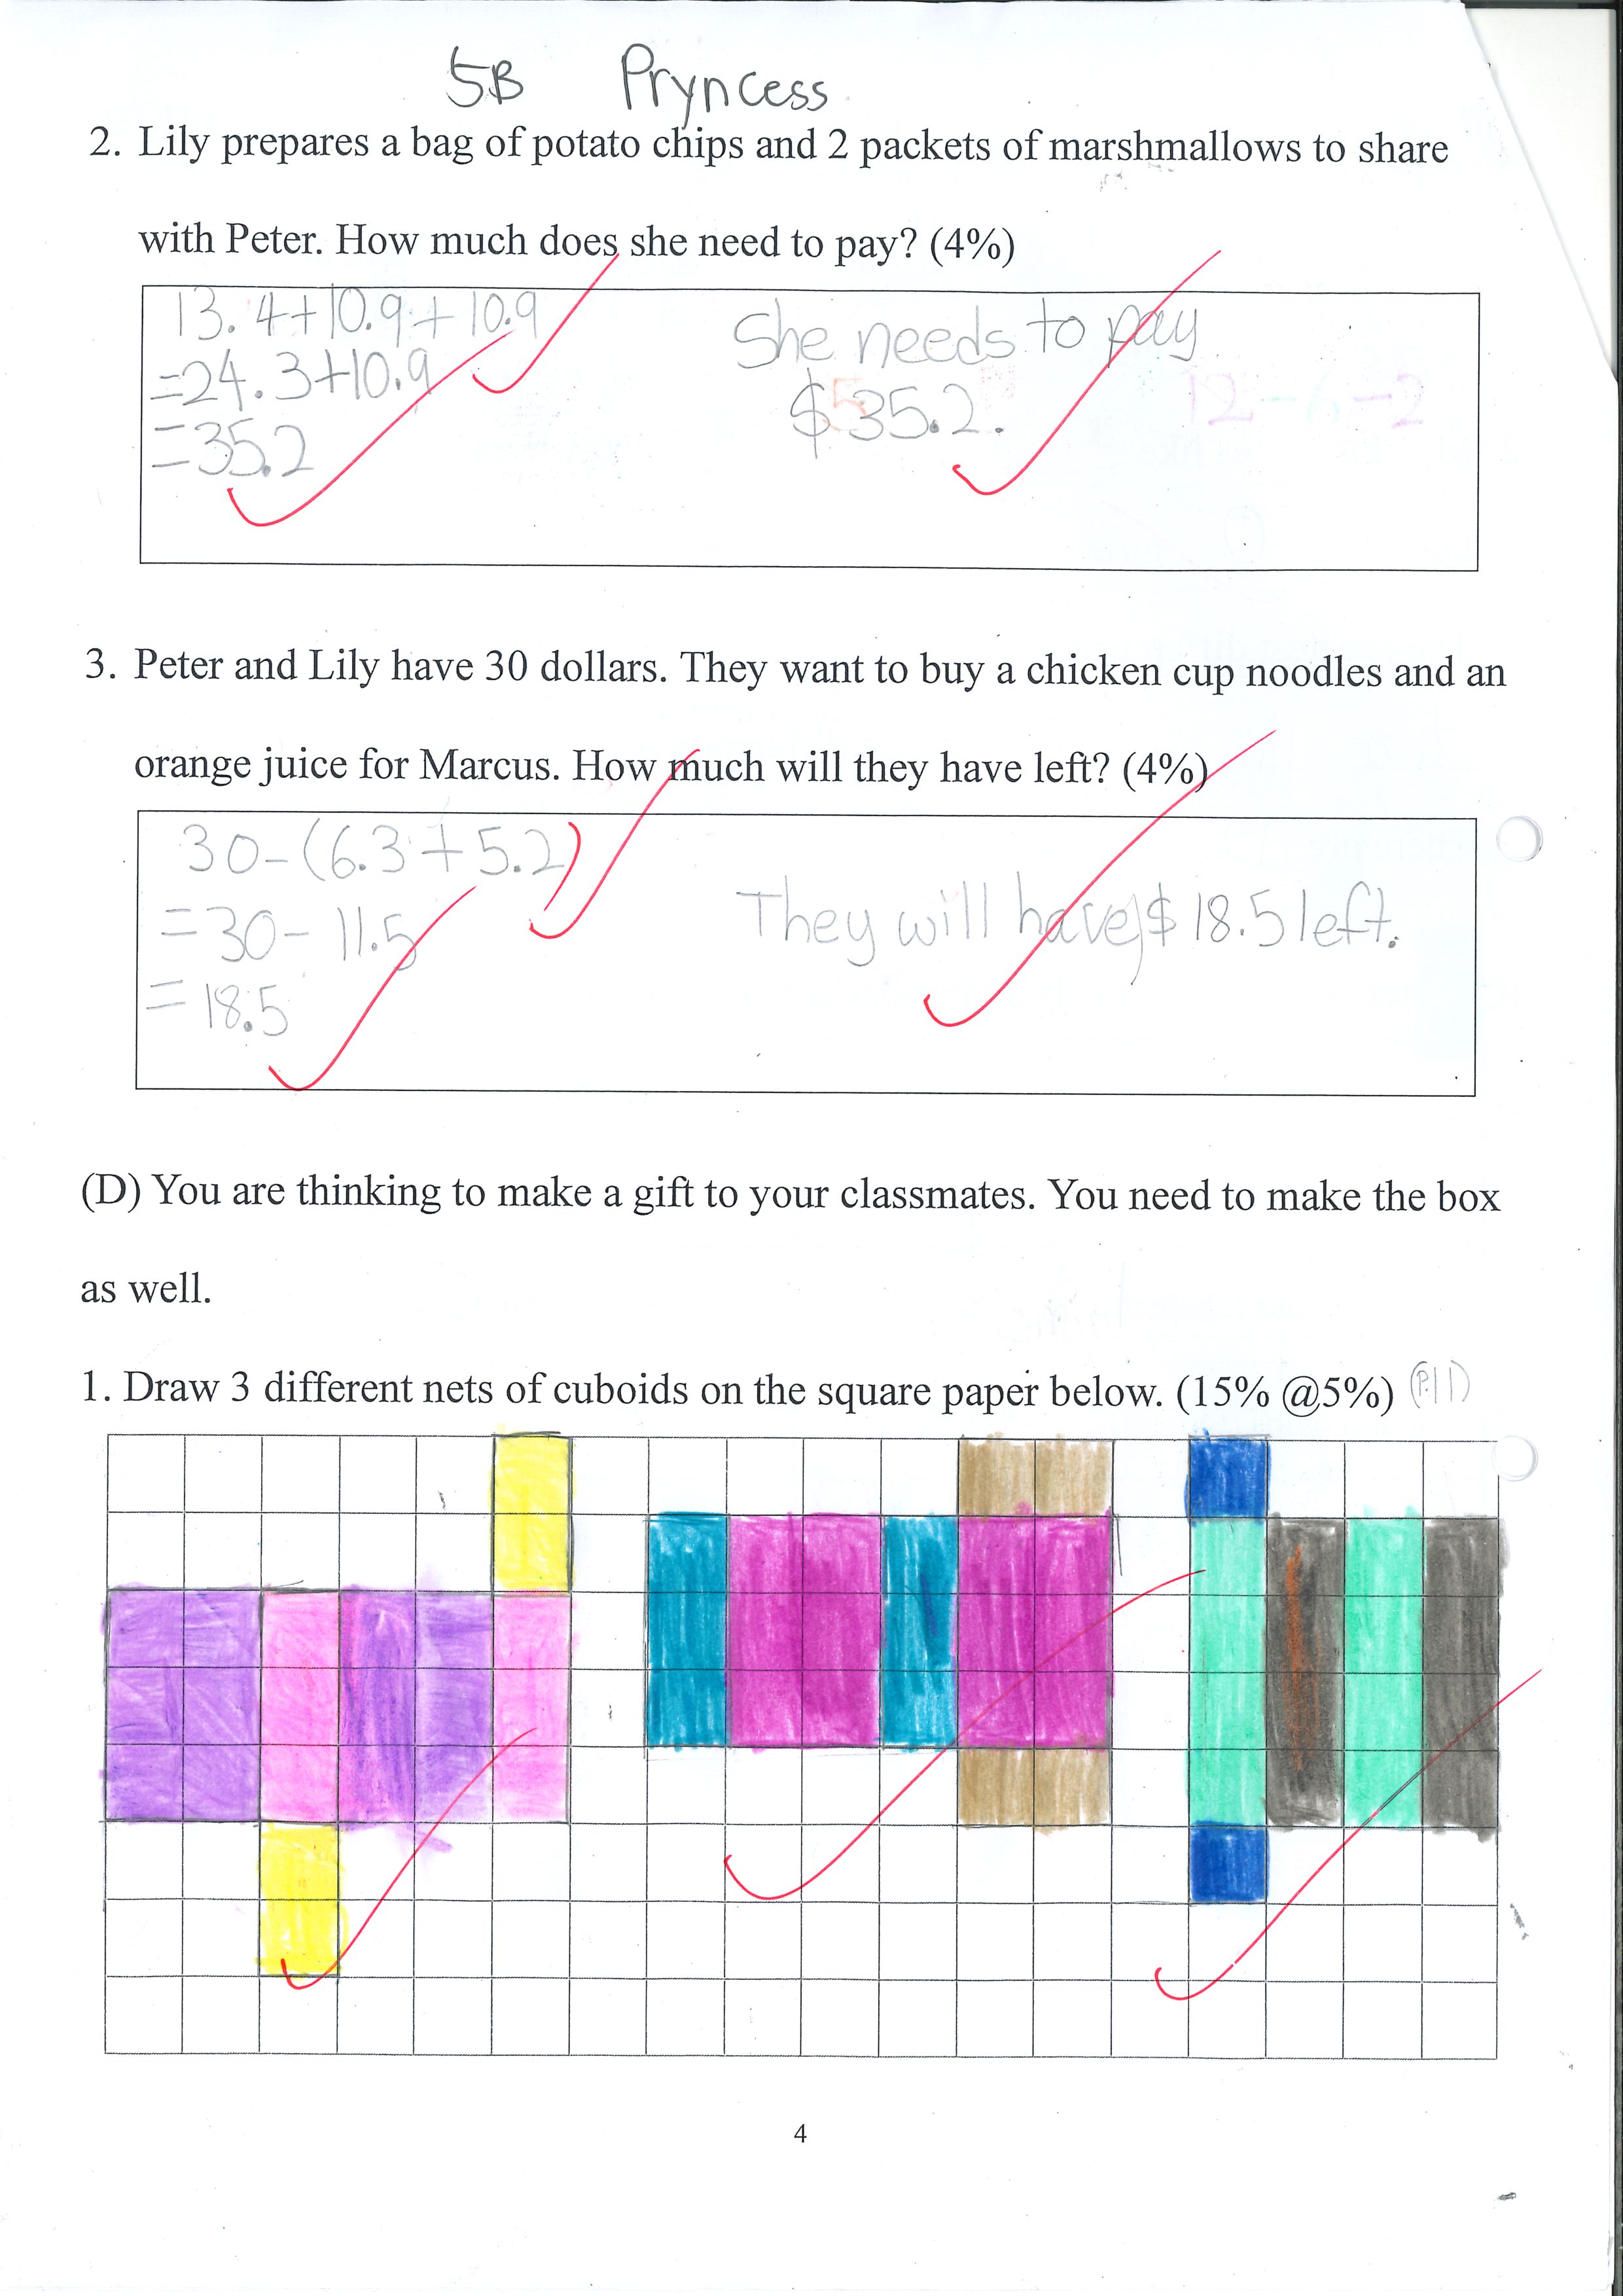 5B Pryncess
2. Lily prepares a bag of potato chips and 2 packets of marshmallows to share
with Peter. How much does she need to pay? (4%)
13.4+10.9+10.9
=24.3+10.9
=35.2
She needs to pay
$35.2.
3. Peter and Lily have 30 dollars. They want to buy a chicken cup noodles and an
orange juice for Marcus. How much will they have left? (4%)
30-(6.3+5.2)
=30-11.5
=18.5
They will have $18.5 left.
(D) You are thinking to make a gift to your classmates. You need to make the box
as well.
1. Draw 3 different nets of cuboids on the square paper below. (15% @5%) (P.11)
4